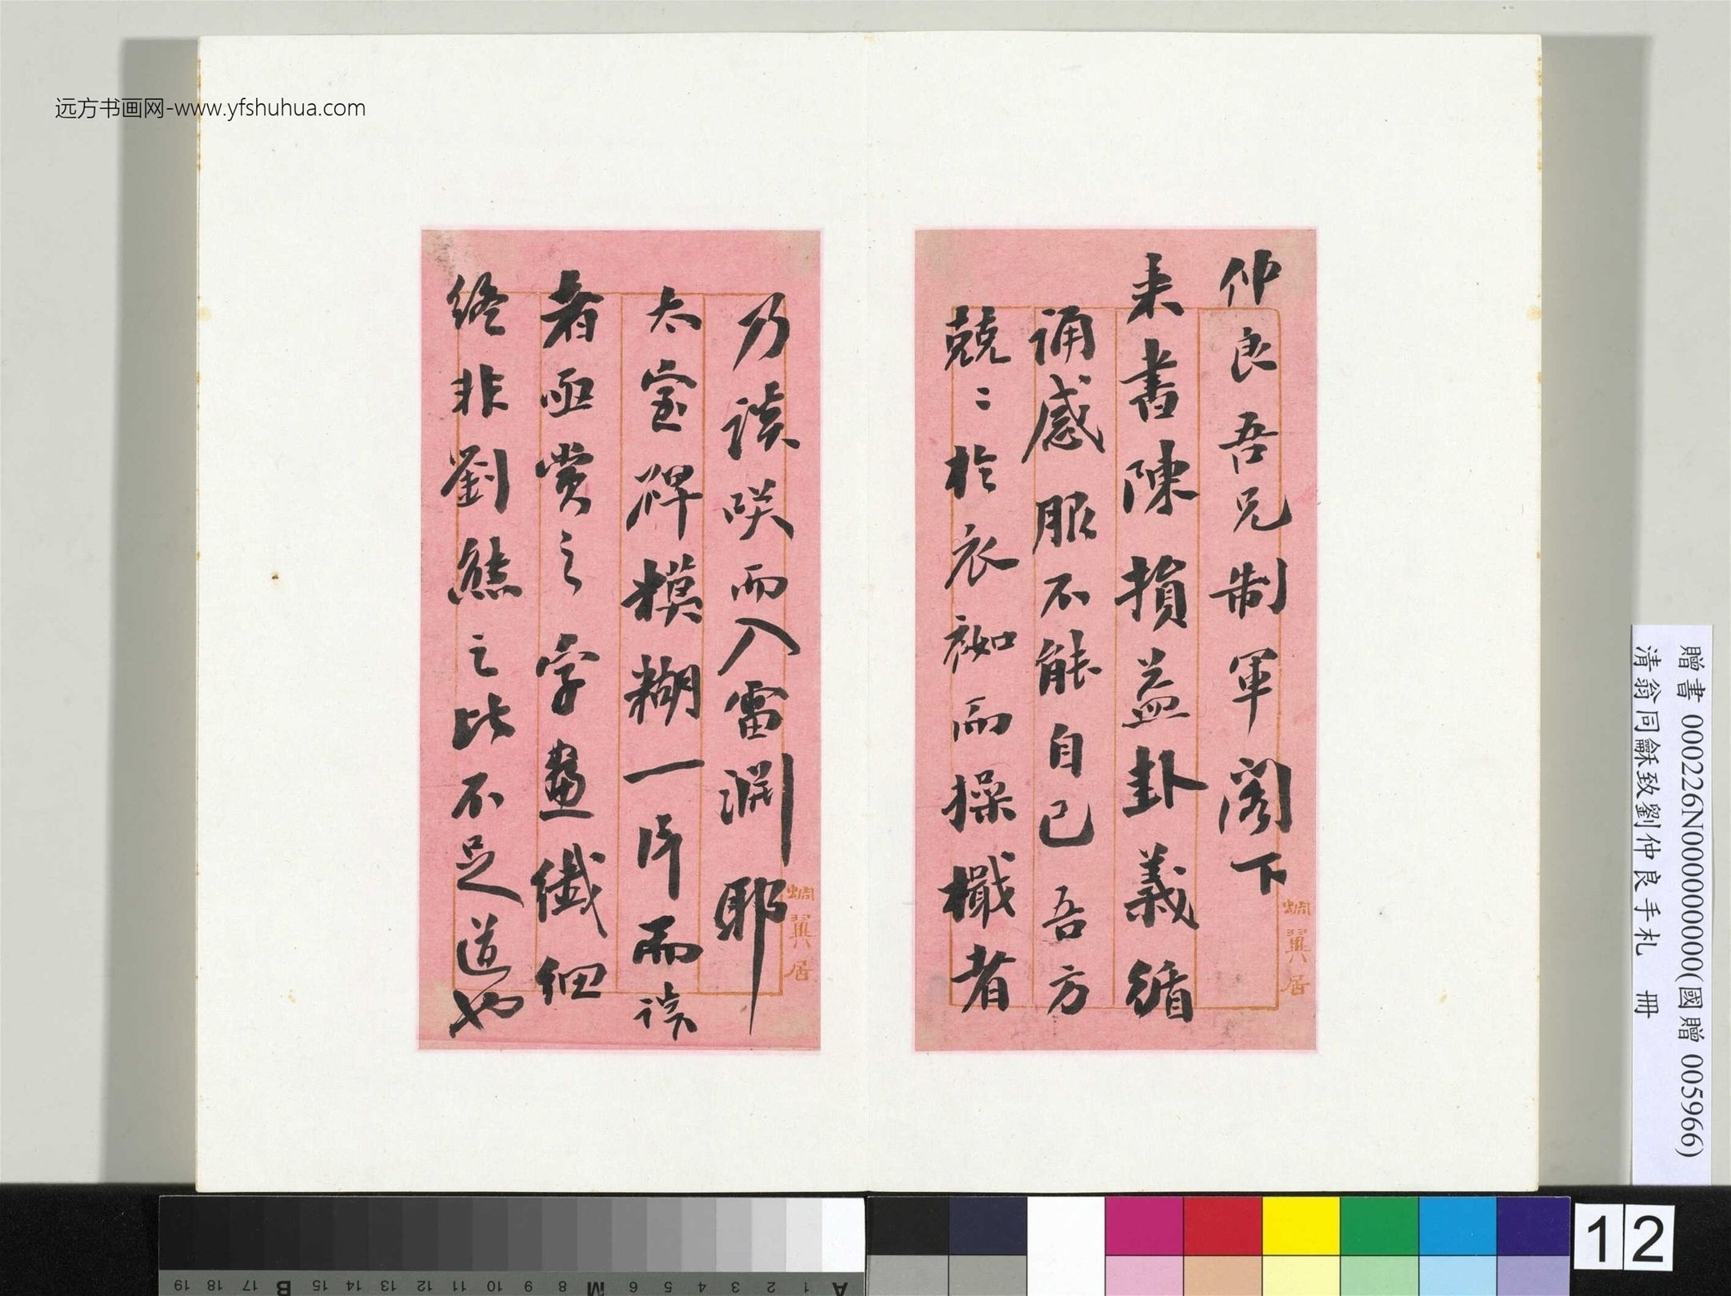 远方书画网-www.yfshuhua.com
仲良吾兄制軍閣下
来書陳損益卦義循
誦感服不能自已吾方
兢〻於衣袽而操檝者
蜩翼居
乃談咲而入雷淵耶
太室碑模糊一片而談
者亟賞之字畫纖細
終非劉熊之比不足道也
蜩翼居
贈書 000226N000000000(國贈 005966)
清翁同龢致劉仲良手札 冊
12
A 1 2 3 4 5 6 M 8 9 10 11 12 13 14 15 B 17 18 19